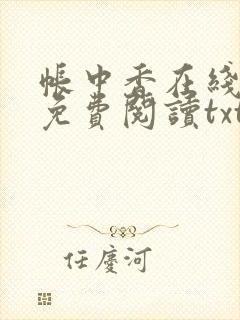 帳中香在綫
免費閱讀txt
任慶河